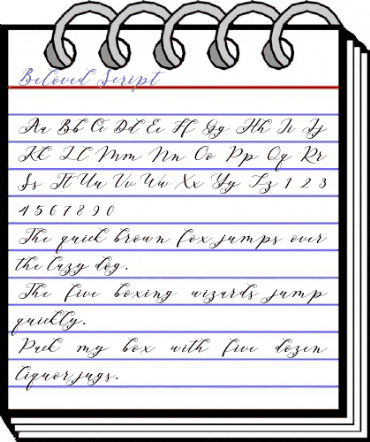 Beloved Script
Aa Bb Cc Dd Ee Ff Gg Hh Ii Jj
Kk Ll Mm Nn Oo Pp Qq Rr
Ss Tt Uu Vv Ww Xx Yy Zz 1 2 3
4 5 6 7 8 9 0
The quick brown fox jumps over
the lazy dog.
The five boxing wizards jump
quickly.
Pack my box with five dozen
liquor jugs.